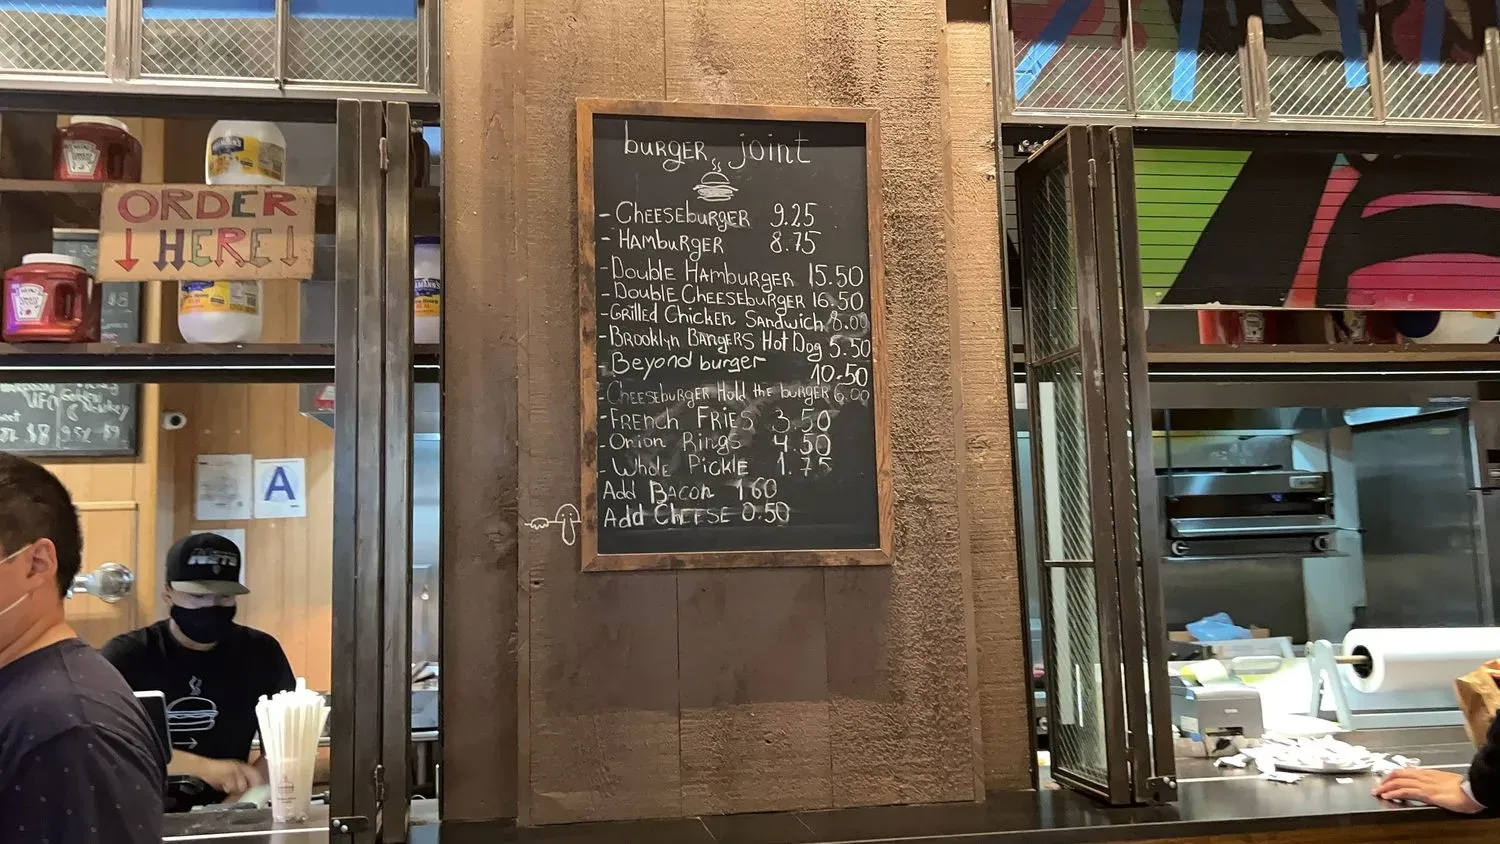 burger joint
- Cheeseburger 9.25
- Hamburger 8.75
- Double Hamburger 15.50
- Double Cheeseburger 16.50
- Grilled Chicken Sandwich 8.00
- Brooklyn Bangers Hot Dog 5.50
- Beyond burger 10.50
- Cheeseburger Hold the burger 6.00
- French Fries 3.50
- Onion Rings 4.50
- Whole Pickle 1.75
Add Bacon 1.60
Add Cheese 0.50
ORDER
HERE
A